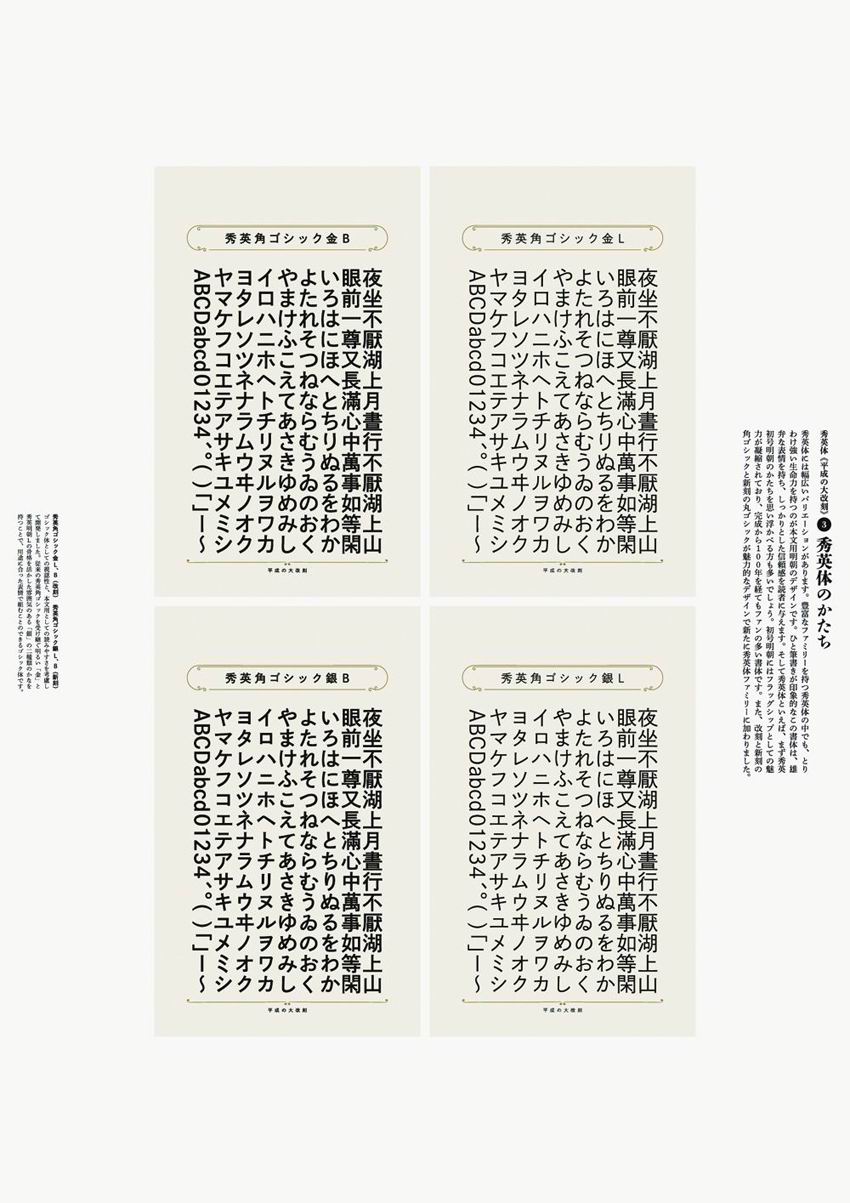 秀英体《平成の大改刻》 3 秀英体のかたち
秀英体には幅広いバリエーションがあります。豊富なファミリーを持つ秀英体の中でも、とり
わけ強い生命力を持つのが本文用明朝のデザインです。ひと筆書きが印象的なこの書体は、雄
弁な表情を持ち、しっかりとした信頼感を読者に与えます。そして秀英体といえば、まず秀英
初号明朝のかたちを思い浮かべる方も多いでしょう。初号明朝にはフラッグシップとしての魅
力が凝縮されており、完成から100年を経てもファンの多い書体です。また、改刻と新刻の
角ゴシックと新刻の丸ゴシックが魅力的なデザインで新たに秀英体ファミリーに加わりました。
秀英角ゴシック金L
夜坐不厭湖上月晝行不厭湖上山
眼前一尊又長滿心中萬事如等閑
いろはにほへとちりぬるをわか
よたれそつねならむうゐのおく
やまけふこえてあさきゆめみし
イロハニホヘトチリヌルヲワカ
ヨタレソツネナラムウヰノオク
ヤマケフコエテアサキユメミシ
ABCDabcd01234、。()「」ー〜
平成の大改刻
秀英角ゴシック金B
夜坐不厭湖上月晝行不厭湖上山
眼前一尊又長滿心中萬事如等閑
いろはにほへとちりぬるをわか
よたれそつねならむうゐのおく
やまけふこえてあさきゆめみし
イロハニホヘトチリヌルヲワカ
ヨタレソツネナラムウヰノオク
ヤマケフコエテアサキユメミシ
ABCDabcd01234、。()「」ー〜
平成の大改刻
秀英角ゴシック銀L
夜坐不厭湖上月晝行不厭湖上山
眼前一尊又長滿心中萬事如等閑
いろはにほへとちりぬるをわか
よたれそつねならむうゐのおく
やまけふこえてあさきゆめみし
イロハニホヘトチリヌルヲワカ
ヨタレソツネナラムウヰノオク
ヤマケフコエテアサキユメミシ
ABCDabcd01234、。()「」ー〜
平成の大改刻
秀英角ゴシック銀B
夜坐不厭湖上月晝行不厭湖上山
眼前一尊又長滿心中萬事如等閑
いろはにほへとちりぬるをわか
よたれそつねならむうゐのおく
やまけふこえてあさきゆめみし
イロハニホヘトチリヌルヲワカ
ヨタレソツネナラムウヰノオク
ヤマケフコエテアサキユメミシ
ABCDabcd01234、。()「」ー〜
平成の大改刻
秀英角ゴシック金L、B(改刻) 秀英角ゴシック銀L、B(新刻)
ゴシック体としての視認性と、本文用としての読みやすさを考慮し
て開発しました。従来の秀英角ゴシックを受け継ぐ明るい「金」と
秀英明朝Lの骨格を活かした雰囲気のある「銀」の二種類のかなを
持つことで、用途に合った表情で組むことのできるゴシック体です。